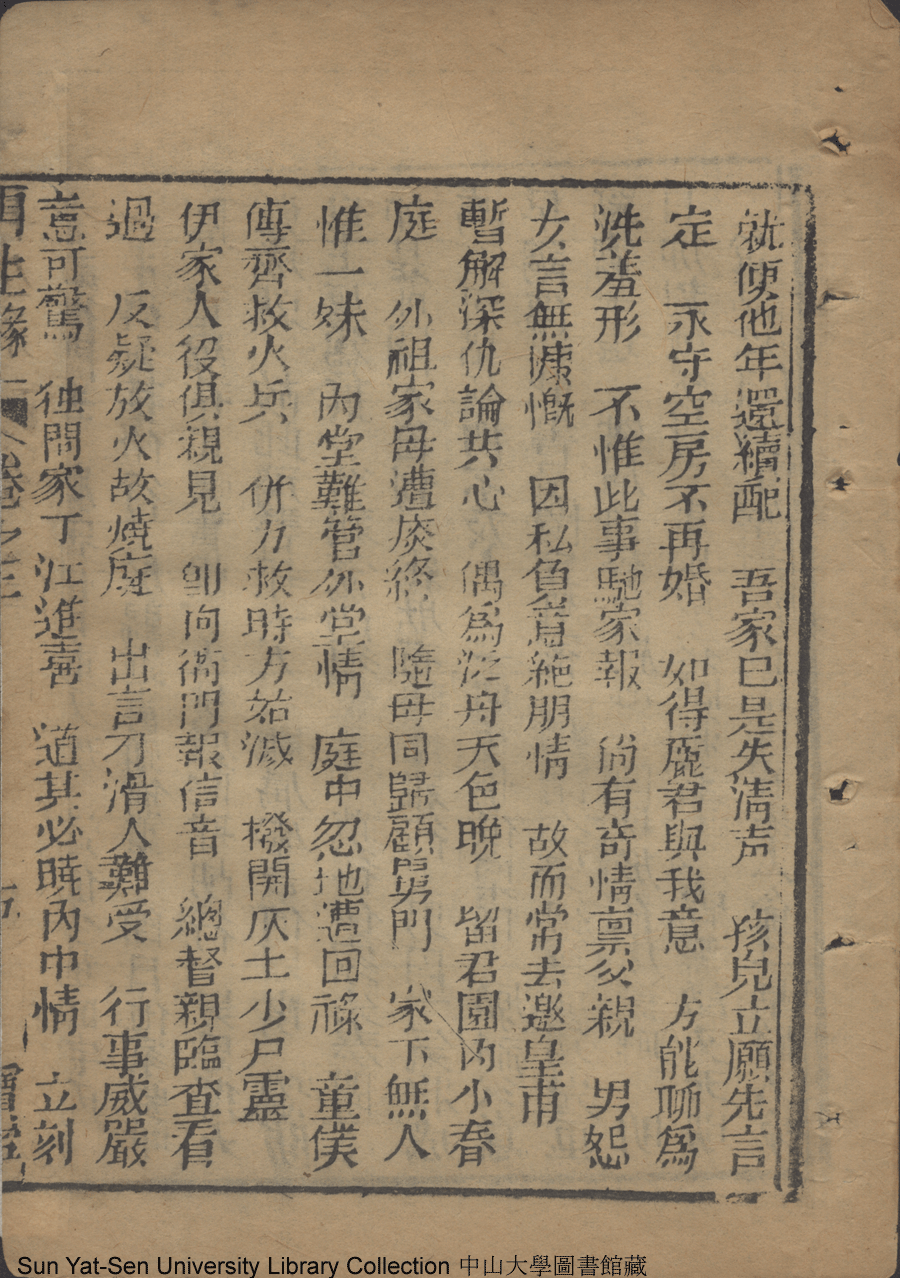 就便他年還續配　吾家已是失清声　孩兒立願先言
定　永守空房不再婚　如得麗君與我意　方能聊爲
洗羞形　不惟此事馳家報　尚有奇情禀父親　男恕
女言無慷慨　因私負意絶朋情　故而常去邀皇甫
暫解深仇論共心　偶爲泛舟天色晚　留君園内小春
庭　外祖家毋遭疾終　隨毋同歸顧舅門　家下無人
惟一妹　内堂難管外堂情　庭中忽地遭回祿　童僕
傳齊救火兵　併力救時方始滅　撥開灰土少尸靈
伊家人役俱親見　卽向衙門報信音　總督親臨查看
過　反疑放火故燒庭　出言刀滑人難受　行事威嚴
意可驚　独問家丁江進喜　道其必曉内中情　立刻
再生緣　卷之三
Sun Yat-Sen University Library Collection 中山大學圖書館藏